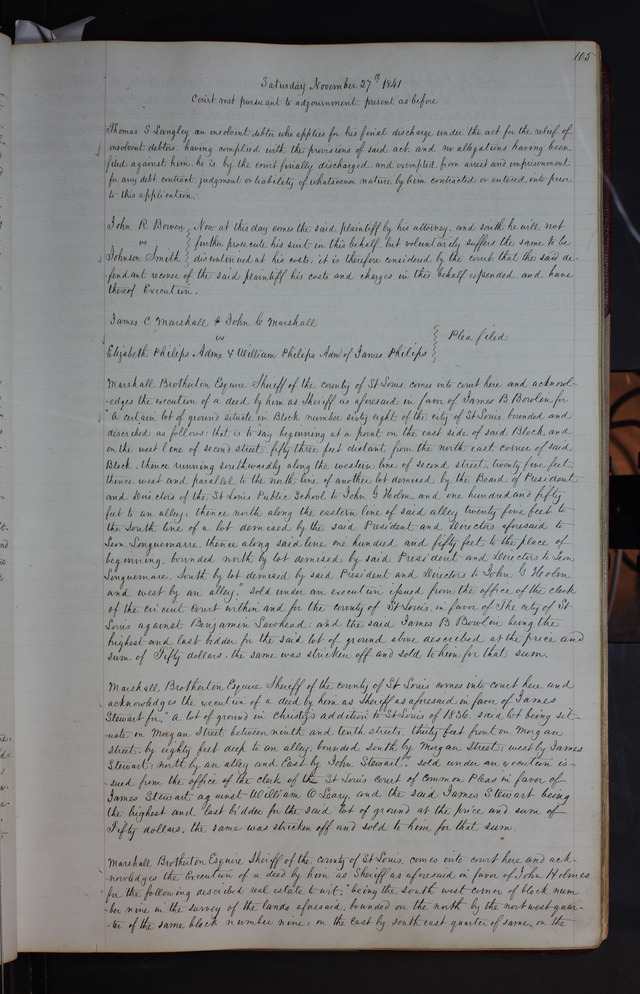 105
Saturday November 27th 1841
Court met pursuant to adjournment present as before
Thomas S Langley an insolvent debtor who applies for his final discharge under the act for the relief of
insolvent debtors, having complied with the provisions of said act, and no allegations having been
filed against him, he is by the court finally discharged, and exempted from arrest and imprisonment
for any debt, contract, judgment or liability of whatsoever nature by him contracted or entered into prior
to this application.
John R. Bowen
vs
Johnson Smith
Now at this day comes the said plaintiff by his attorney, and saith he will not
further prosecute his suit in this behalf, but voluntarily suffers the same to be
discontinued at his costs; it is therefore considered by the court that the said de-
fendant recover of the said plaintiff his costs and charges in this behalf expended, and have
thereof Execution.
James C Marshall & John C Marshall
vs
Elizabeth Philips Admx & William Philips Adm of James Philips
Plea filed
Marshall Brotherton Esquire Sheriff of the county of St Louis, comes into court here and acknowl-
-edges the execution of a deed by him as Sheriff as aforesaid in favor of James B Bowlin, for
"A certain lot of ground situate in Block number sixty eight of the city of St Louis, bounded and
described as follows: that is to say beginning at a point on the east side of said Block, and
on the west line of second street, fifty three feet distant from the north east corner of said
Block, thence running southwardly along the western line of second street, twenty five feet,
thence west and parallel to the north line of another lot demised by the Board of President
and Directors of the St Louis Public School to John G Holm, and one hundred and fifty
feet to an alley; thence north along the eastern line of said alley twenty five feet to
the South line of a lot demised by the said President and Directors aforesaid to
Leon Longuemarre, thence along said line one hundred and fifty feet to the place of
beginning, bounded north by lot demised by said President and Directors to Leon
Longuemare, South by lot demised by said President and Directors to John G Holm
and west by an alley," sold under an execution issued from the office of the clerk
of the circuit court within and for the county of St Louis, in favor of The city of St
Louis against Benjamin Lawhead, and the said James B Bowlin being the
highest and last bidder for the said lot of ground above described at the price and
sum of Fifty dollars, the same was stricken off and sold to him for that sum.
Marshall Brotherton Esquire Sheriff of the county of St Louis comes into court here and
acknowledges the execution of a deed by him as Sheriff as aforesaid in favor of James
Stewart for, "A lot of ground in Christy's addition to St Louis of 1836. said lot being sit-
uate on Morgan Street between ninth and tenth streets, thirty feet front on Morgan
street, by eighty feet deep to an alley, bounded south by Morgan Street; west by James
Stewart; north by an alley and East by John Stewart," sold under an execution is-
sued from the office of the clerk of the St Louis court of common Pleas in favor of
James Stewart against William O Leary, and the said James Stewart being
the highest and last bidder for the said lot of ground at the price and sum of
Fifty dollars, the same was stricken off and sold to him for that sum.
Marshall Brotherton Esquire, Sheriff of the county of St Louis, comes into court here and ack-
nowledges the Execution of a deed by him as Sheriff as aforesaid in favor of John Holmes
for the following described real estate to wit; "being the south west corner of block num
ber nine in the survey of the lands aforesaid, bounded on the north by the nort west quar-
-ter of the same block number nine; on the East by south east quarter of same, on the